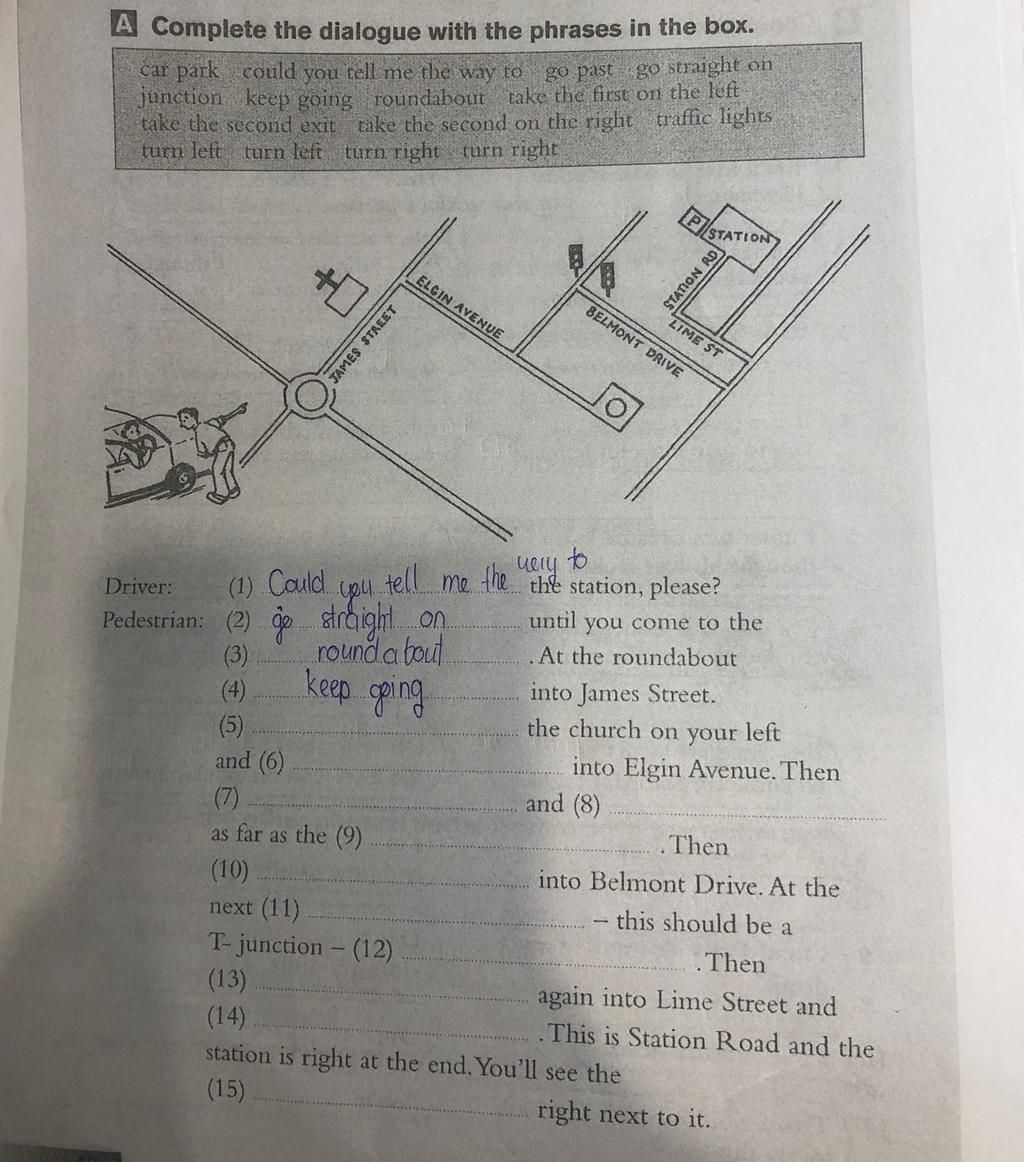 A Complete the dialogue with the phrases in the box.
car park could you tell me the way to go past go straight on
junction keep going roundabout take the first on the left
take the second exit take the second on the right traffic lights
turn left turn left turn right turn right
P STATION
STATION RD
ELGIN AVENUE
JAMES STREET
BELMONT DRIVE
LIME ST
Driver: (1) Could you tell me the very to the station, please?
Pedestrian: (2) go straight on until you come to the
(3) roundabout . At the roundabout
(4) keep going into James Street.
(5) the church on your left
and (6) into Elgin Avenue. Then
(7) and (8)
as far as the (9) . Then
(10) into Belmont Drive. At the
next (11) – this should be a
T-junction – (12) . Then
(13) again into Lime Street and
(14) . This is Station Road and the
station is right at the end. You'll see the
(15) right next to it.